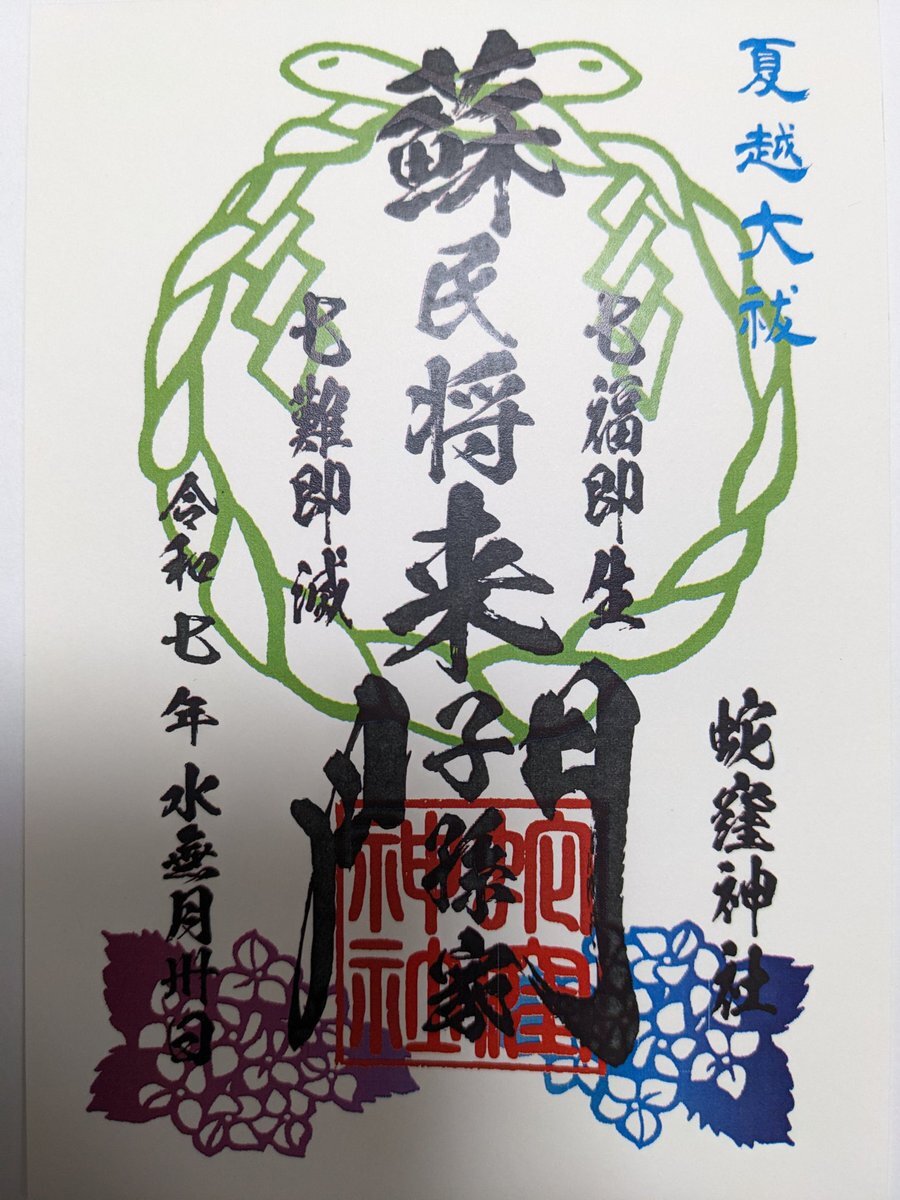 夏越大祓
蛇窪神社
七福即生
蘇民将来子孫家門
七難即滅
令和七年水無月卅日
蛇窪神社